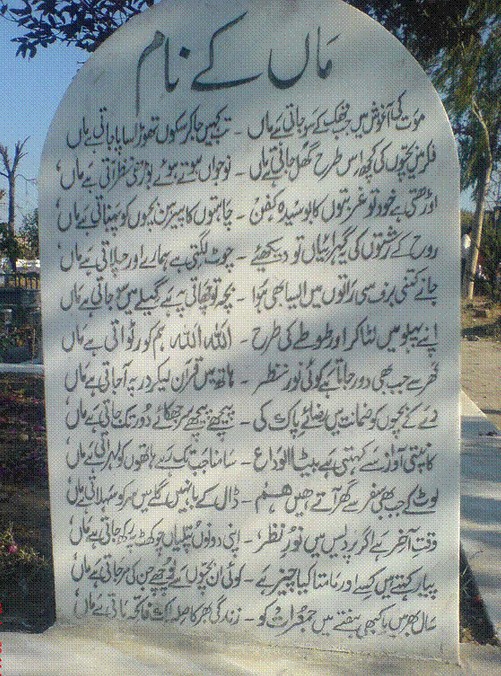 ماں کے نام
موت کی آغوش میں جب تھک کے سو جاتی ہے ماں - تب کہیں جا کر سکوں تھوڑا سا پا جاتی ہے ماں
فکر میں بچوں کی کچھ اس طرح گھل جاتی ہے ماں - نوجواں ہوتے ہوئے بوڑھی نظر آتی ہے ماں
اوڑھتی ہے خود تو غربتوں کا بوسیدہ کفن - چاہتوں کا پیرہن بچوں کو پہناتی ہے ماں
روح کے رشتوں کی گہرائیاں تو دیکھئیے - چوٹ لگتی ہے ہمارے اور چلاتی ہے ماں
جانے کتنی برف سی راتوں میں ایسا بھی ہوا - بچہ تو چھاتی پہ ہے گیلے میں سو جاتی ہے ماں
اپنے پہلو میں لٹا کر اور طوطے کی طرح - اللہ اللہ ہم کو رٹواتی ہے ماں
گھر سے جب بھی دور جاتا ہے کوئی نور نظر - ہاتھ میں قرآن لیکر در پہ آ جاتی ہے ماں
دے کے بچوں کو ضمانت میں رضائے پاک کی - پیچھے پیچھے سر جھکائے دور تک جاتی ہے ماں
کانپتی آواز سے کہتی ہے بیٹا الوداع - سامنا جب تک رہے ہاتھوں کو لہراتی ہے ماں
لوٹ کے جب بھی سفر سے گھر آتے ہیں ہم - ڈال کے بانہیں گلے میں سر کو سہلاتی ہے ماں
وقت آخر ہے اگر پردیس میں نور نظر - اپنی دونوں پتلیاں چوکھٹ پہ رکھ جاتی ہے ماں
پیار کہتے ہیں کسے اور مامتا کیا چیز ہے - کوئی ان بچوں سے پوچھے جن کی مر جاتی ہے ماں
سال بھر میں یا کبھی ہفتے میں جمعرات کو - زندگی بھر کا صلہ اک فاتحہ پاتی ہے ماں